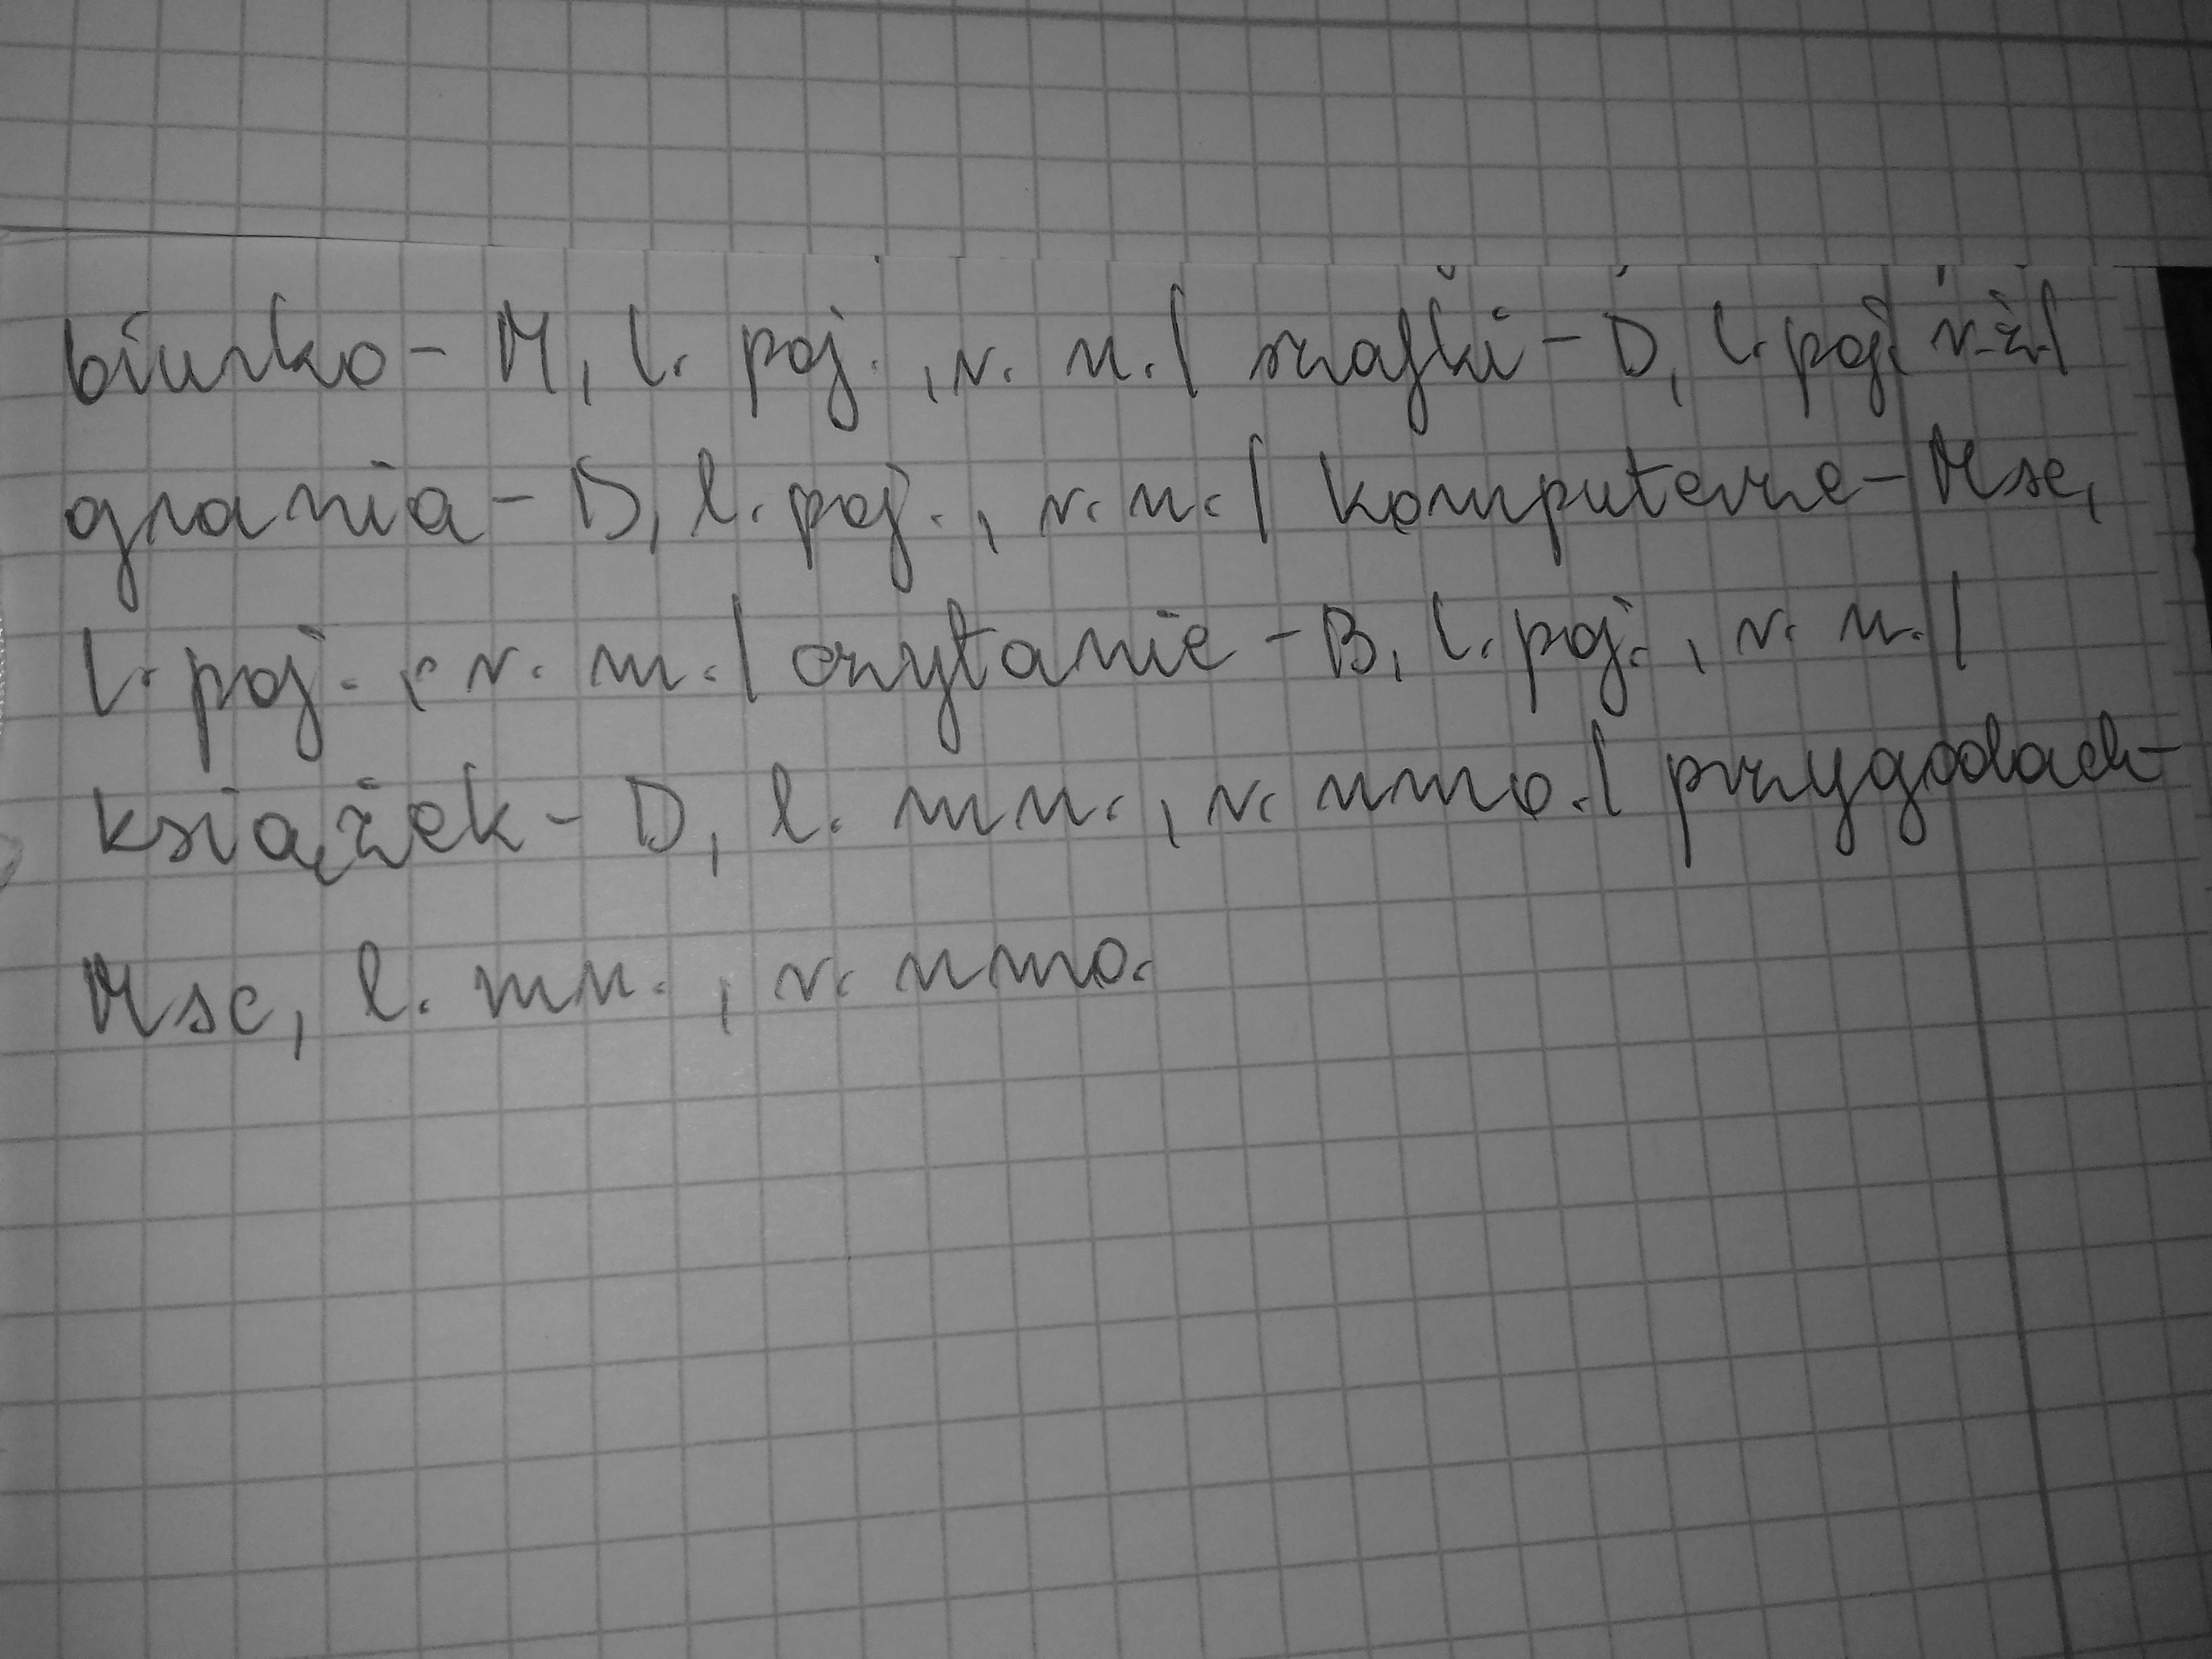 biurko - M, l. poj., r. n. | szafki - D, l. poj. r. ż. |
grania - D, l. poj., r. n. | komputerze - Msc,
l. poj., r. m. | czytanie - B, l. poj., r. n. |
książek - D, l. mn., r. nmo. | przygodach -
Msc, l. mn., r. nmo.